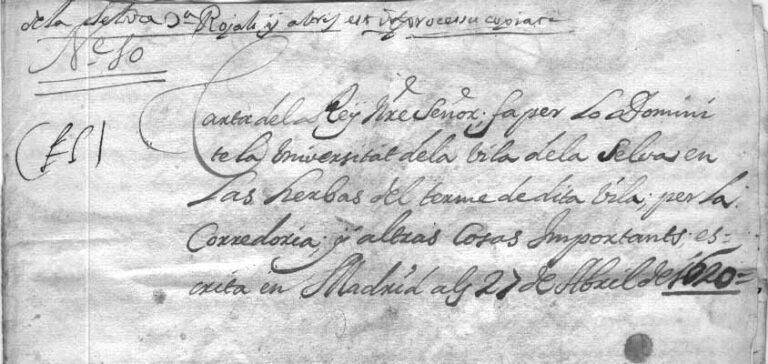 de la Selva Rojals y altres est in processu copiat
Nº 50
Carta del Rey Nre Señor; fa per lo Domini
te la Universitat de la Vila de la Selva en
Las herbas del terme de dita Vila; per la
Corredoria; y altras Cosas Importants es-
crita en Madrid als 27 de Abril de 1620=